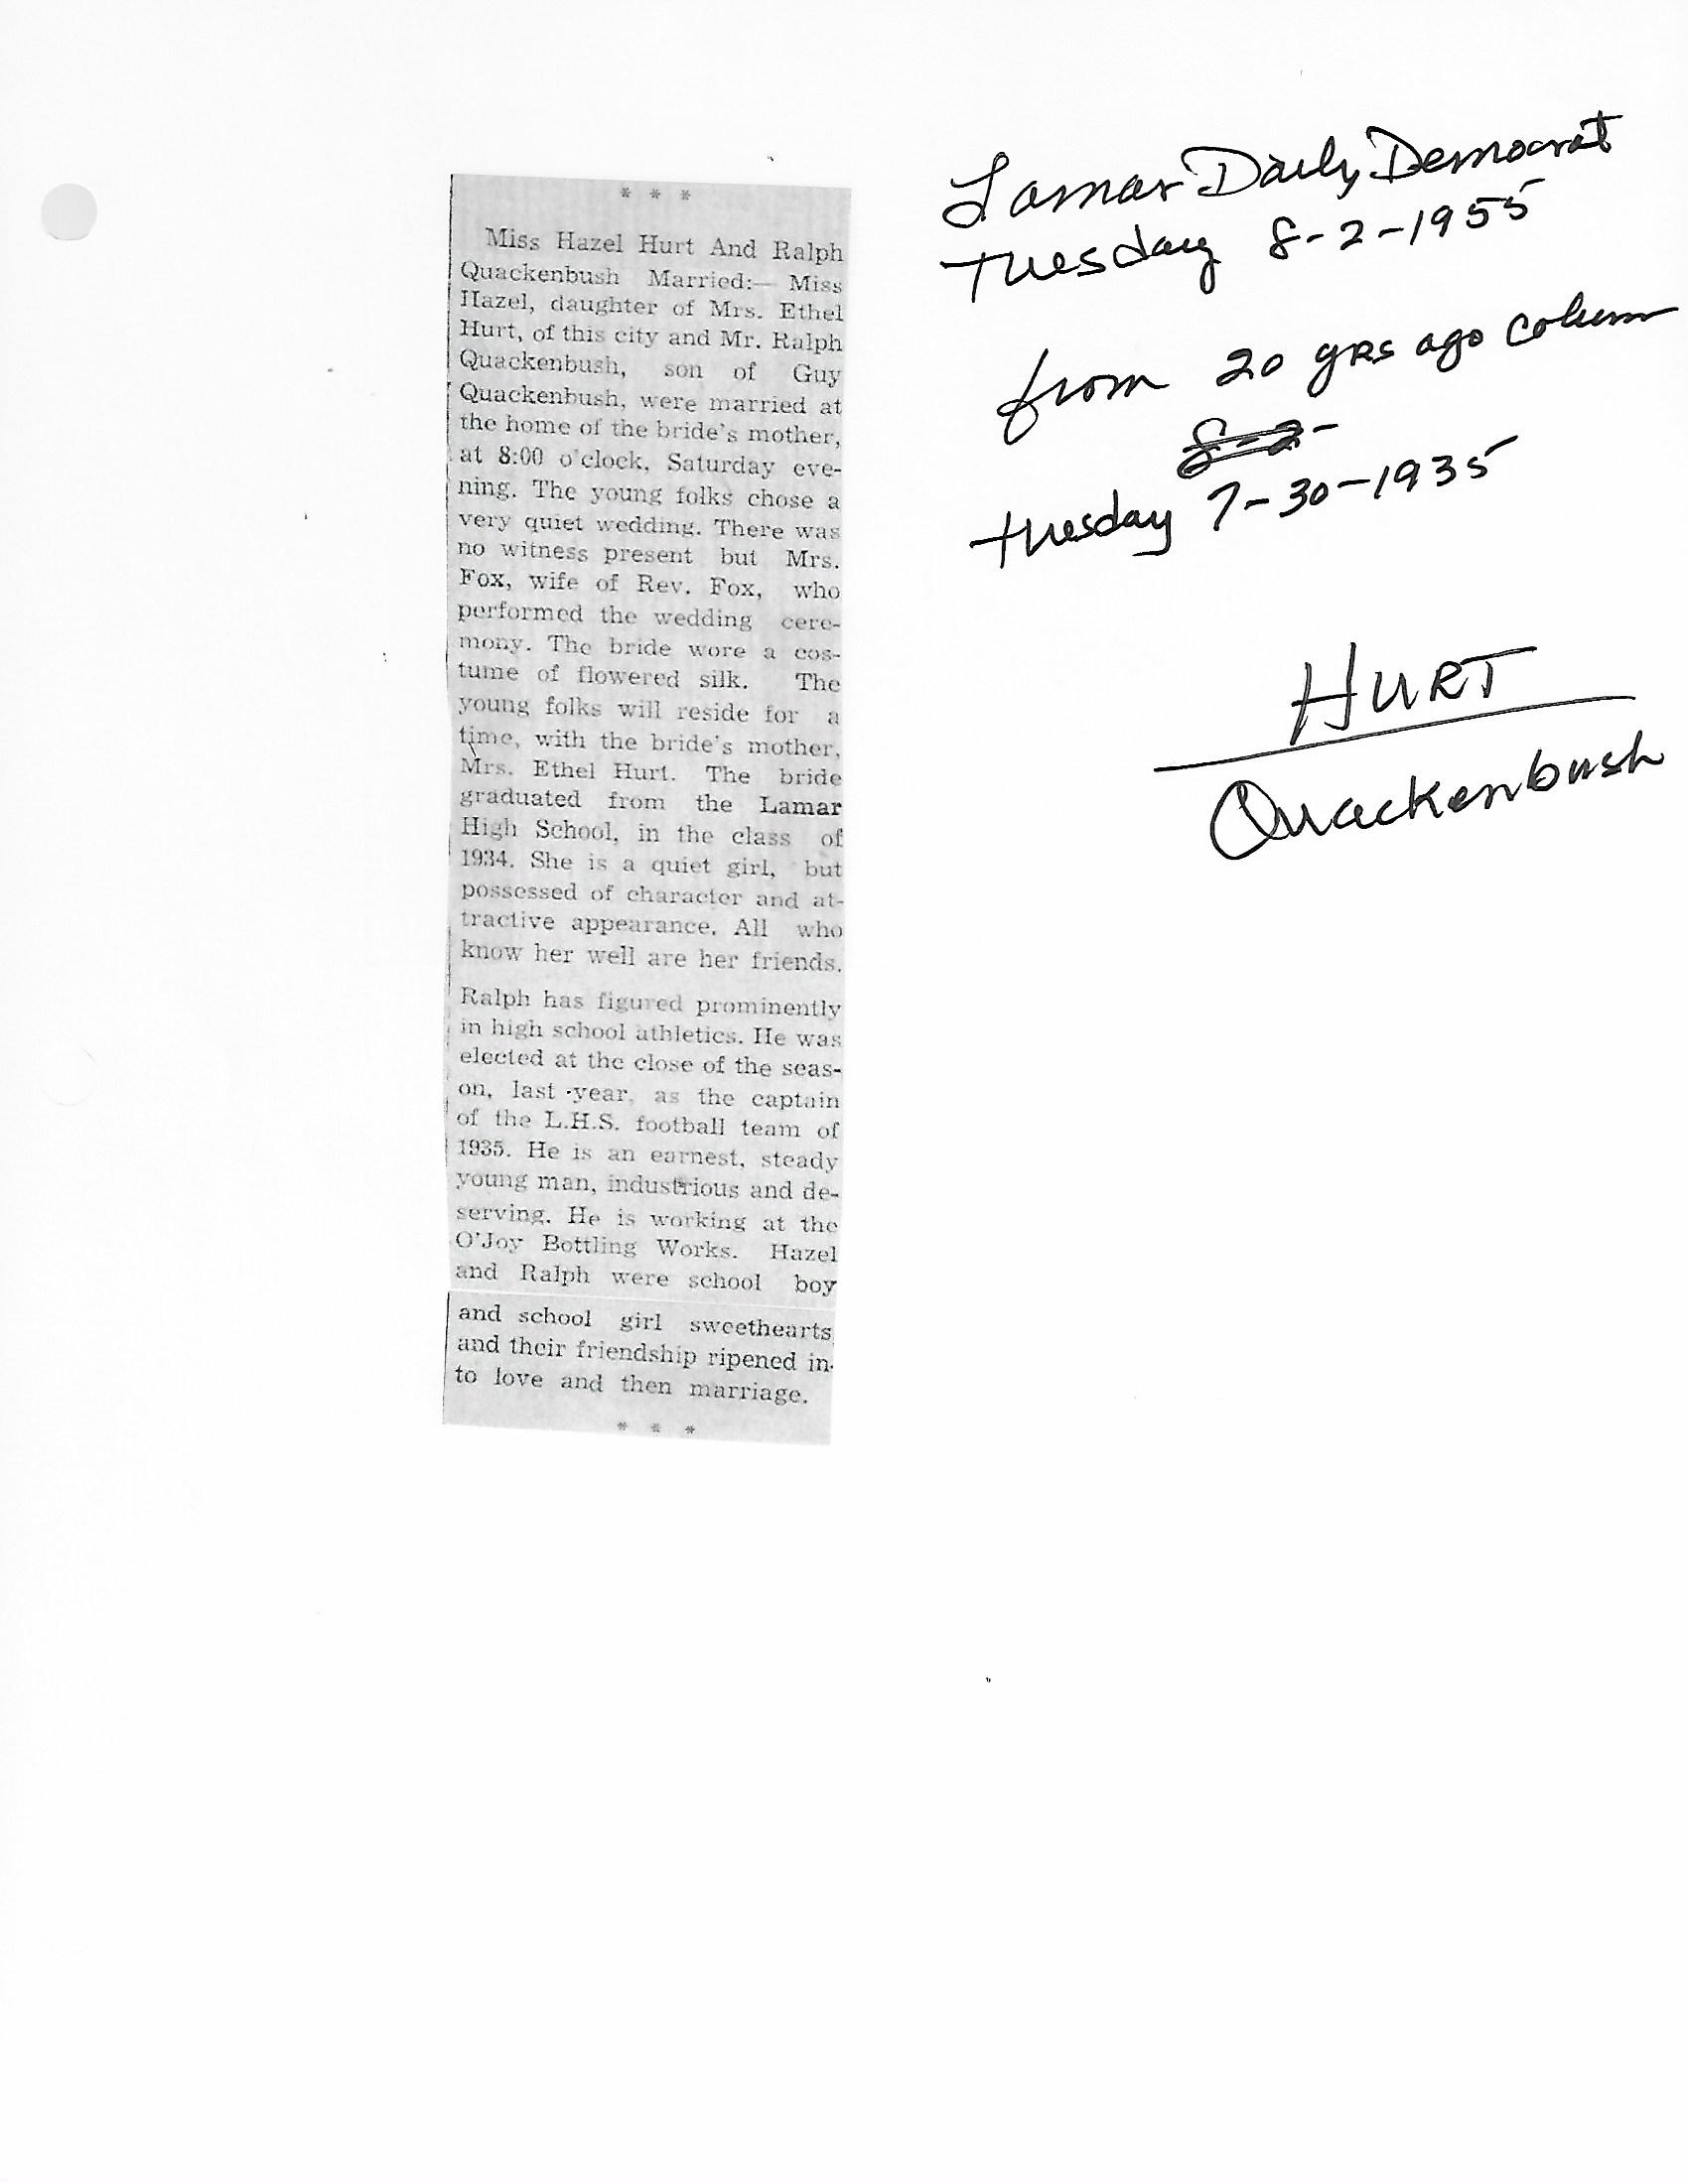 * * *
Miss Hazel Hurt And Ralph
Quackenbush Married:— Miss
Hazel, daughter of Mrs. Ethel
Hurt, of this city and Mr. Ralph
Quackenbush, son of Guy
Quackenbush, were married at
the home of the bride's mother,
at 8:00 o'clock, Saturday eve-
ning. The young folks chose a
very quiet wedding. There was
no witness present but Mrs.
Fox, wife of Rev. Fox, who
performed the wedding cere-
mony. The bride wore a cos-
tume of flowered silk. The
young folks will reside for a
time, with the bride's mother,
Mrs. Ethel Hurt. The bride
graduated from the Lamar
High School, in the class of
1934. She is a quiet girl, but
possessed of character and at-
tractive appearance. All who
know her well are her friends.
Ralph has figured prominently
in high school athletics. He was
elected at the close of the seas-
on, last year, as the captain
of the L.H.S. football team of
1935. He is an earnest, steady
young man, industrious and de-
serving. He is working at the
O'Joy Bottling Works. Hazel
and Ralph were school boy
and school girl sweethearts
and their friendship ripened in-
to love and then marriage.
* * *
Lamar Daily Democrat
Tuesday 8-2-1955
from 20 yrs ago column
8-2-
tuesday 7-30-1935
HURT
Quackenbush